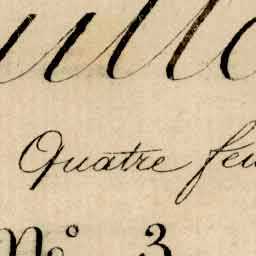 Quatre feu
Nº 3